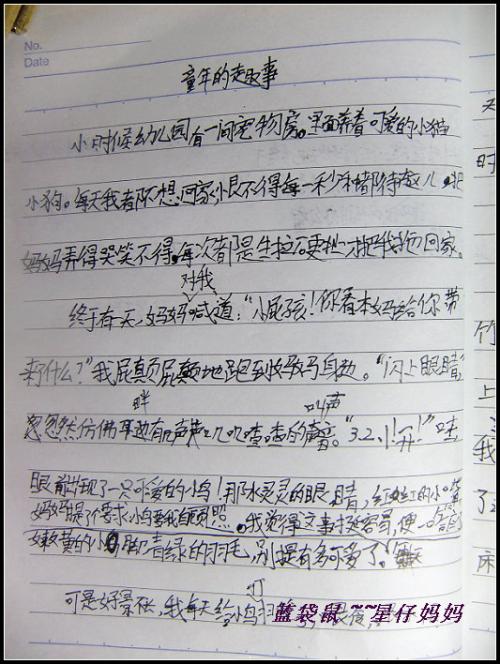 No.
Date
童年的趣事
小时候幼儿园有一间宠物房。里面养着可爱的小猫
小狗。每天我都不想回家,恨不得每一秒都待在那儿,把
妈妈弄得哭笑不得。每次都是生拉硬扯才把我拖回家。
对我
终于有一天,妈妈喊道:“小屁孩!你看本妈给你带
来了什么?”我屁颠屁颠地跑到妈妈身边。“闪上眼睛”
畔 叫声
忽然仿佛耳边有叽叽喳喳的声音。“3.2.1!开!”哇
眼前出现了一只可爱的小鸟!那水灵灵的眼睛,红红的小嘴
妈妈提了个要求小鸟要我自己照。我觉得这事挺容易,便一口答应
嫩黄的小脚青绿的羽毛,别提有多可爱了。
可是好景不长,我每天给小鸟
蓝袋鼠~~星仔妈妈
天
时
竹
上
我
了
床